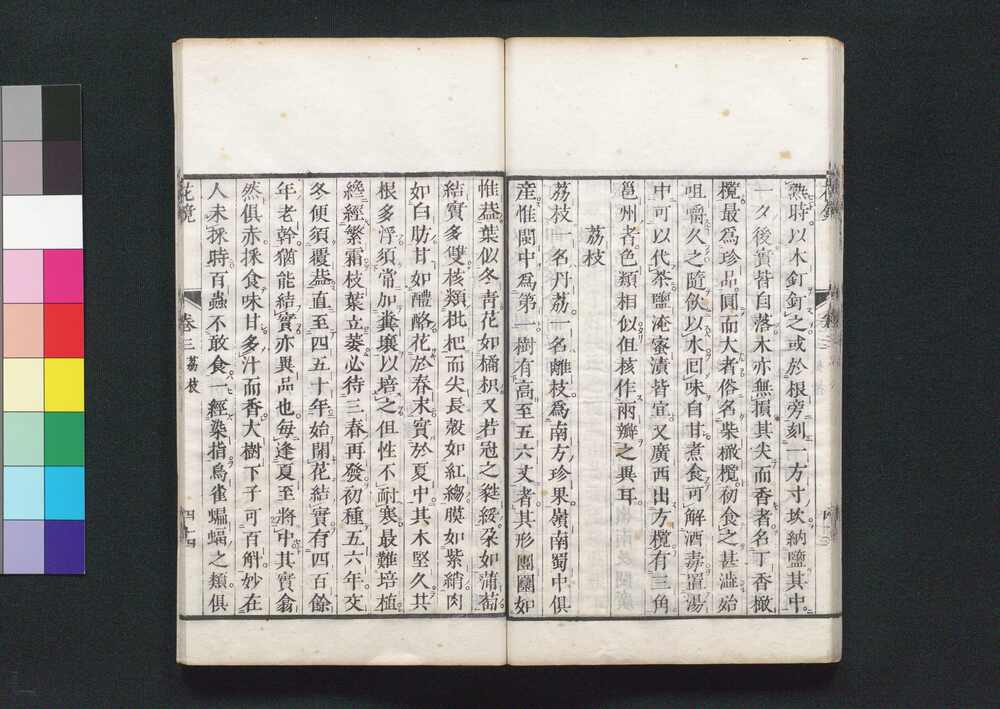 熟時以木釘釘之或於根旁刻一方寸坎納鹽其中
一夕後實皆自落木亦無損其尖而香者名丁香橄
欖最爲珍品圓而大者俗名柴橄欖初食之甚澁始
咀嚼久之隨飲以水囘味自甘煮食可解酒毒置湯
中可以代茶鹽淹蜜漬皆宜又廣西出方欖有三角
邕州者色類相似但核作兩瓣之異耳
荔枝
荔枝一名丹荔一名離枝爲南方珍果嶺南蜀中俱
産惟閩中爲第一樹有高至五六丈者其形團團如
惟葢葉似冬青花如橘枳又若冠之㽔綏朶如蒲萄
結實多雙核類枇杷而尖長殻如紅縐膜如紫綃肉
如白肪甘如醴酪花於春末實於夏中其木堅久其
根多浮須常加糞壤以培之但性不耐寒最難培植
纔經繁霜枝葉立萎必待三春再發初種五六年交
冬便須覆葢直至四五十年始開花結實有四百餘
年老幹猶能結實亦異品也每逢夏至將中其實翕
然俱赤採食味甘多汁而香大樹下子可百斛妙在
人未採時百蟲不敢食一經染指鳥雀蝙蝠之類俱
花鏡
卷三
荔枝
四十四